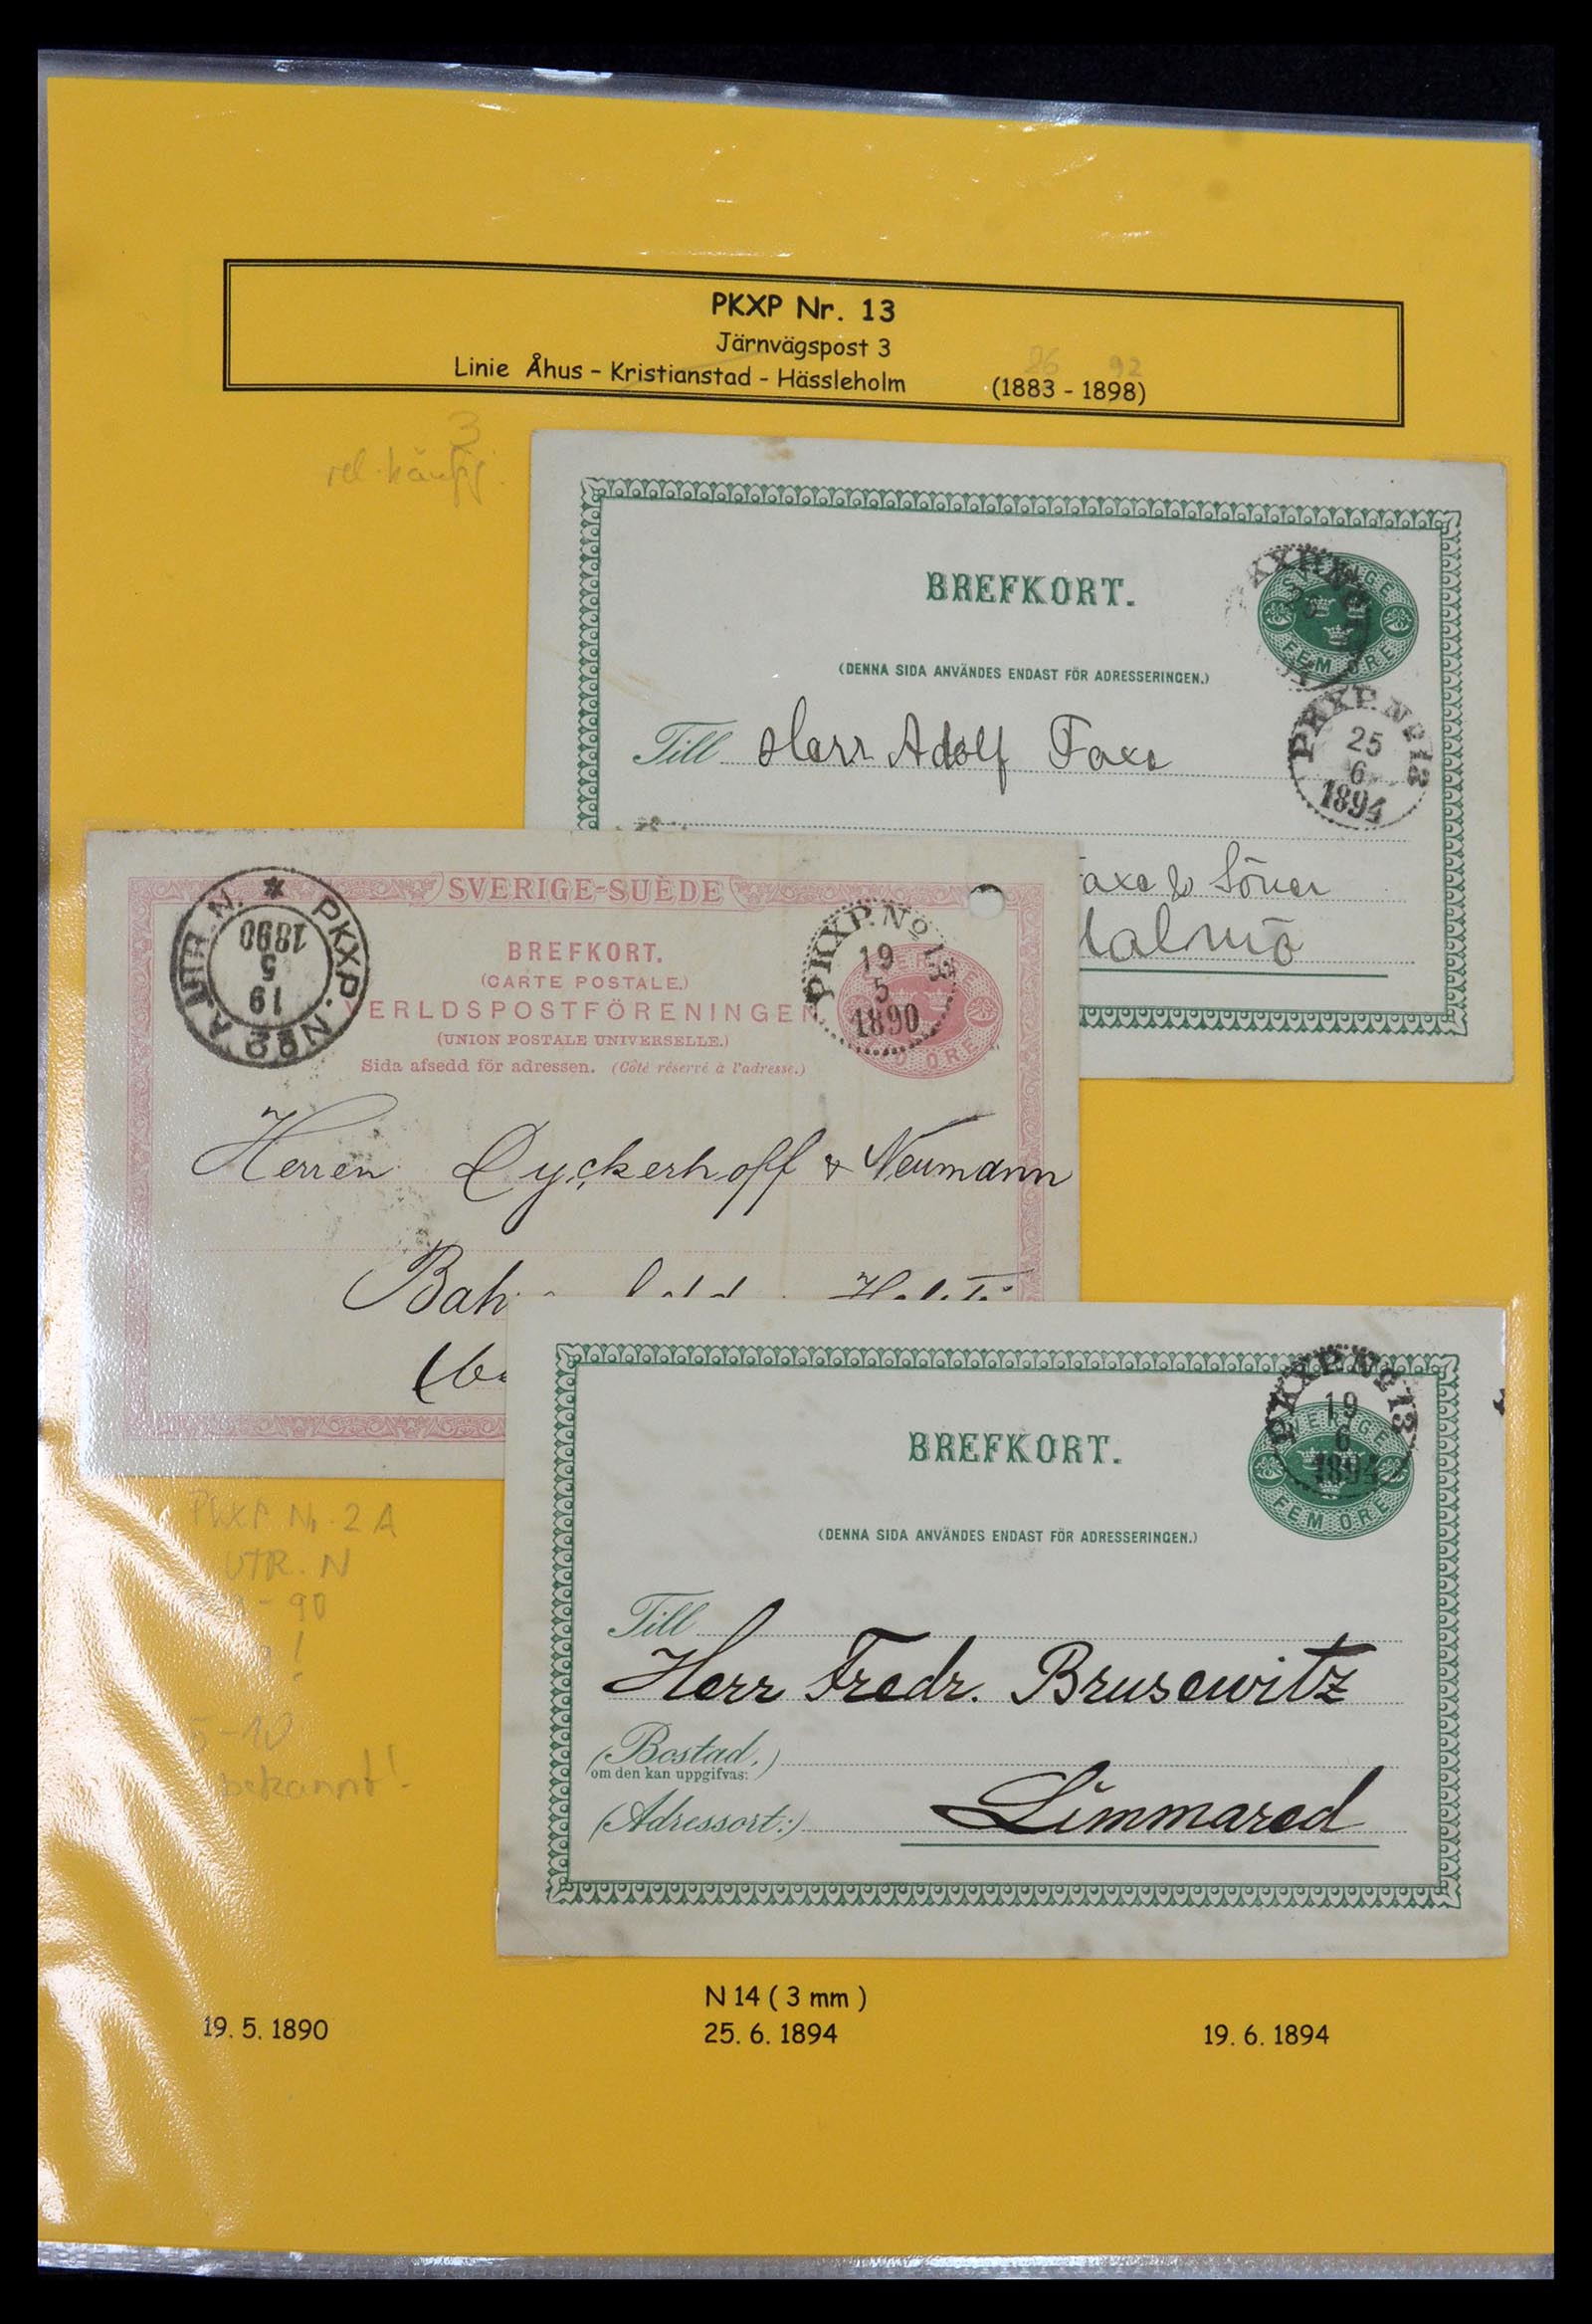 PKXP Nr. 13
Järnvägspost 3
Linie Åhus - Kristianstad - Hässleholm (1883 - 1898)
26 92
3
BREFKORT.
(DENNA SIDA ANVÄNDES ENDAST FÖR ADRESSERINGEN.)
SVERIGE
FEM ÖRE
PKXP. No 13
25
6
1894
Till Herr Adolf Faxe
axe & Söner
almö
SVERIGE-SUÈDE
BREFKORT.
(CARTE POSTALE.)
VERLDSPOSTFÖRENINGEN
(UNION POSTALE UNIVERSELLE.)
Sida afsedd för adressen. (Côté réservé à l'adresse.)
PKXP. No 2 A UTR. N.
19
5
1890
PKXP. No 13
19
5
1890
Herren Dyckerhoff & Neumann
Bah
BREFKORT.
(DENNA SIDA ANVÄNDES ENDAST FÖR ADRESSERINGEN.)
SVERIGE
FEM ÖRE
PKXP. No 13
19
6
1894
Till
Herr Fredr. Brusewitz
(Bostad,)
om den kan uppgifvas:
(Adressort:) Limmared
PKXP Nr. 2 A
UTR. N
- 90
!
5-10
bekannt!
N 14 ( 3 mm )
19. 5. 1890 25. 6. 1894 19. 6. 1894